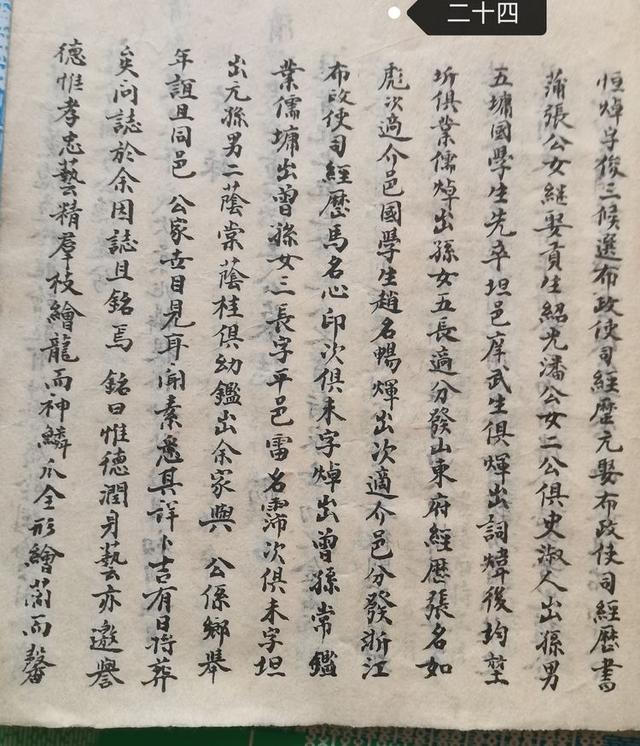 二十四
恒焯字俊三候選布政使司經歷元娶布政使司經歷書
蒲張公女継娶貢生紹光潘公女二公俱史淑人出孫男
五墉國學生先卒坦邑庠武生俱煇出詞煒後均堃
圻俱業儒焯出孫女五長適分發山東府經歷張名如
彪次適介邑國學生趙名暢煇出次適介邑分發浙江
布政使司經歷馬名心印次俱未字焯出曾孫常鑑
業儒墉出曾孫女三長字平邑雷名霈次俱未字坦
出元孫男二蔭棠蔭桂俱幼鑑出余家與 公係鄉舉
年誼且同邑 公家世目見耳聞素悉其詳卜吉有日将葬
矣问誌於余因誌且銘焉 銘曰惟德潤身藝亦邀譽
德惟孝忠藝精羣枝繪龍而神鱗爪全形繪蘭而馨